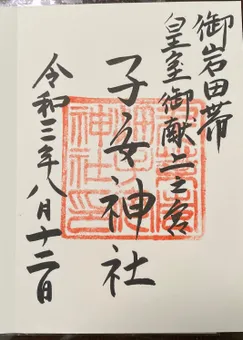 御岩田帯
皇室御献上之宮
子安神社
令和三年八月十二日